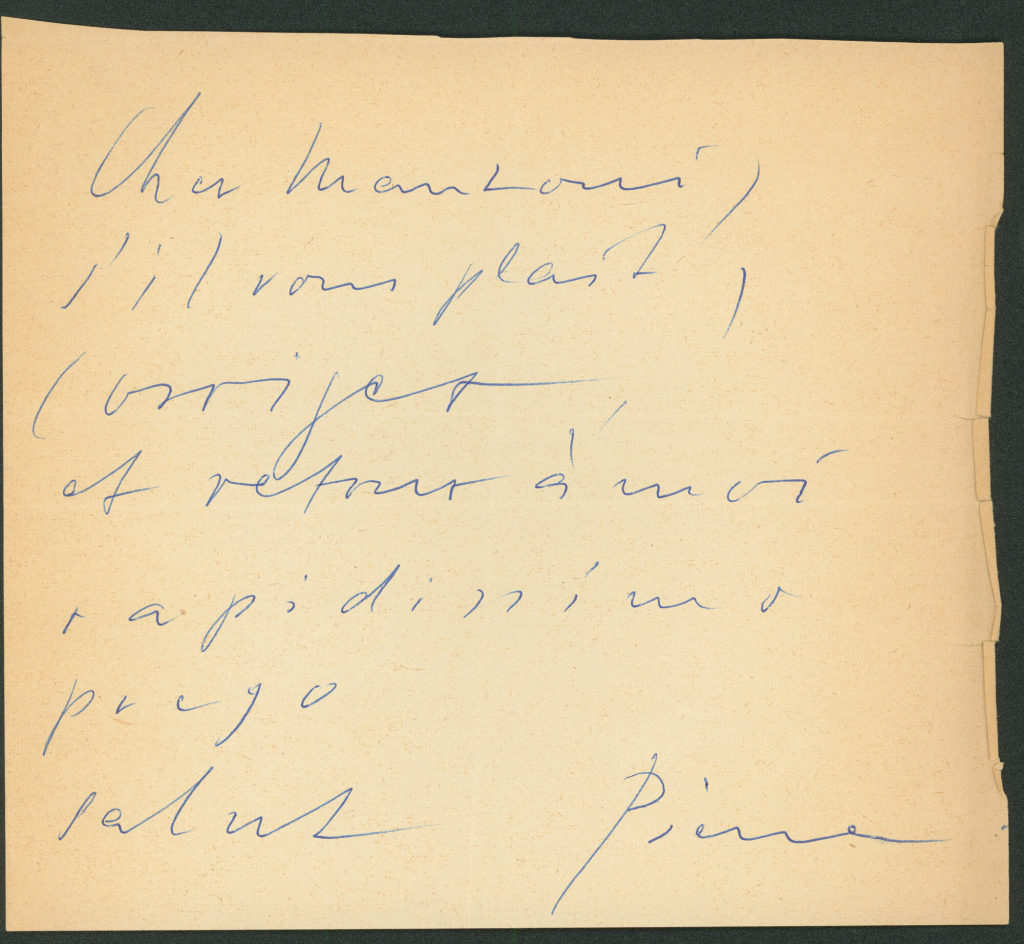 Cher Manzoni,
s'il vous plaît,
Corriger,
et retour à moi
rapidissimo
prego
salut Pierre